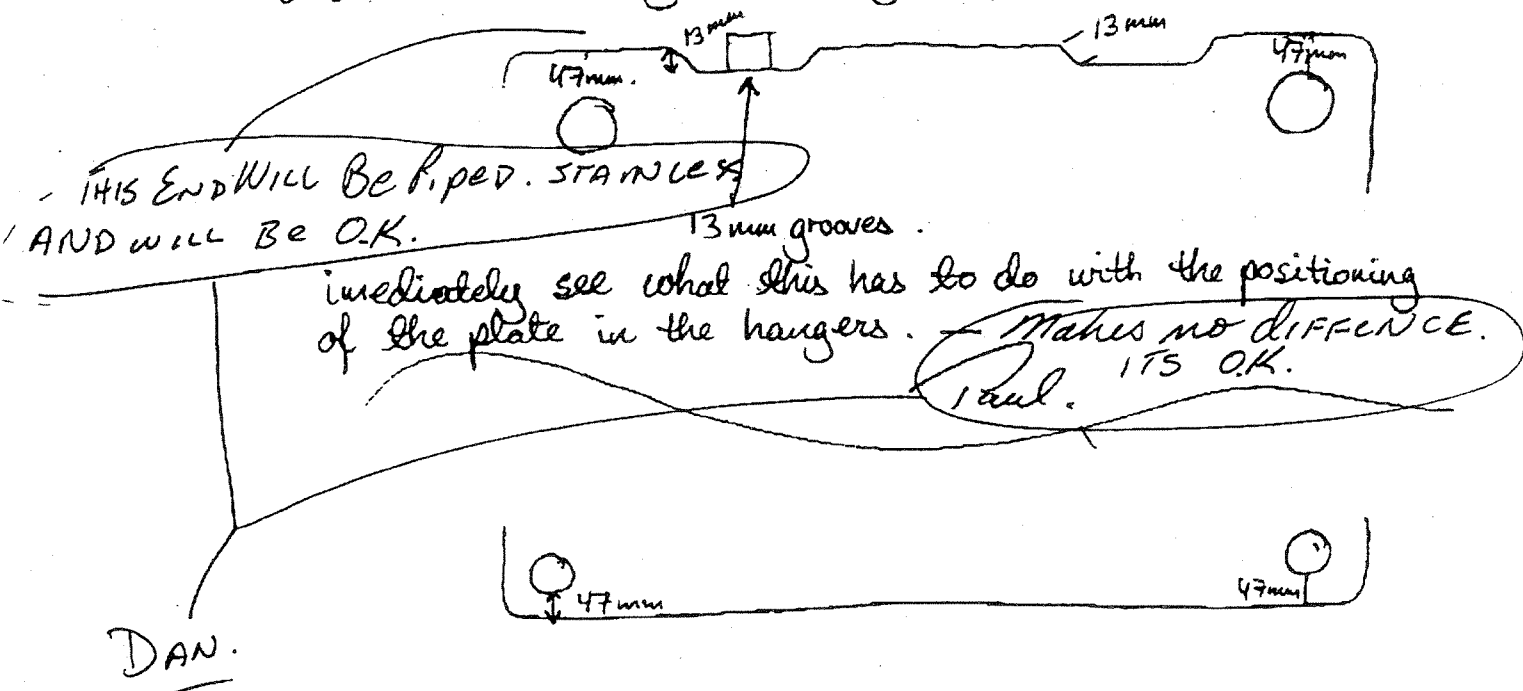 13mm
13mm
47mm.
47mm
THIS END WILL BE PIPED. STAINLESS
AND WILL BE O.K.
13mm grooves.
imediately see what this has to do with the positioning
of the plate in the hangers. – Makes no DIFFENCE.
ITS O.K.
Paul.
47mm
47mm
DAN.